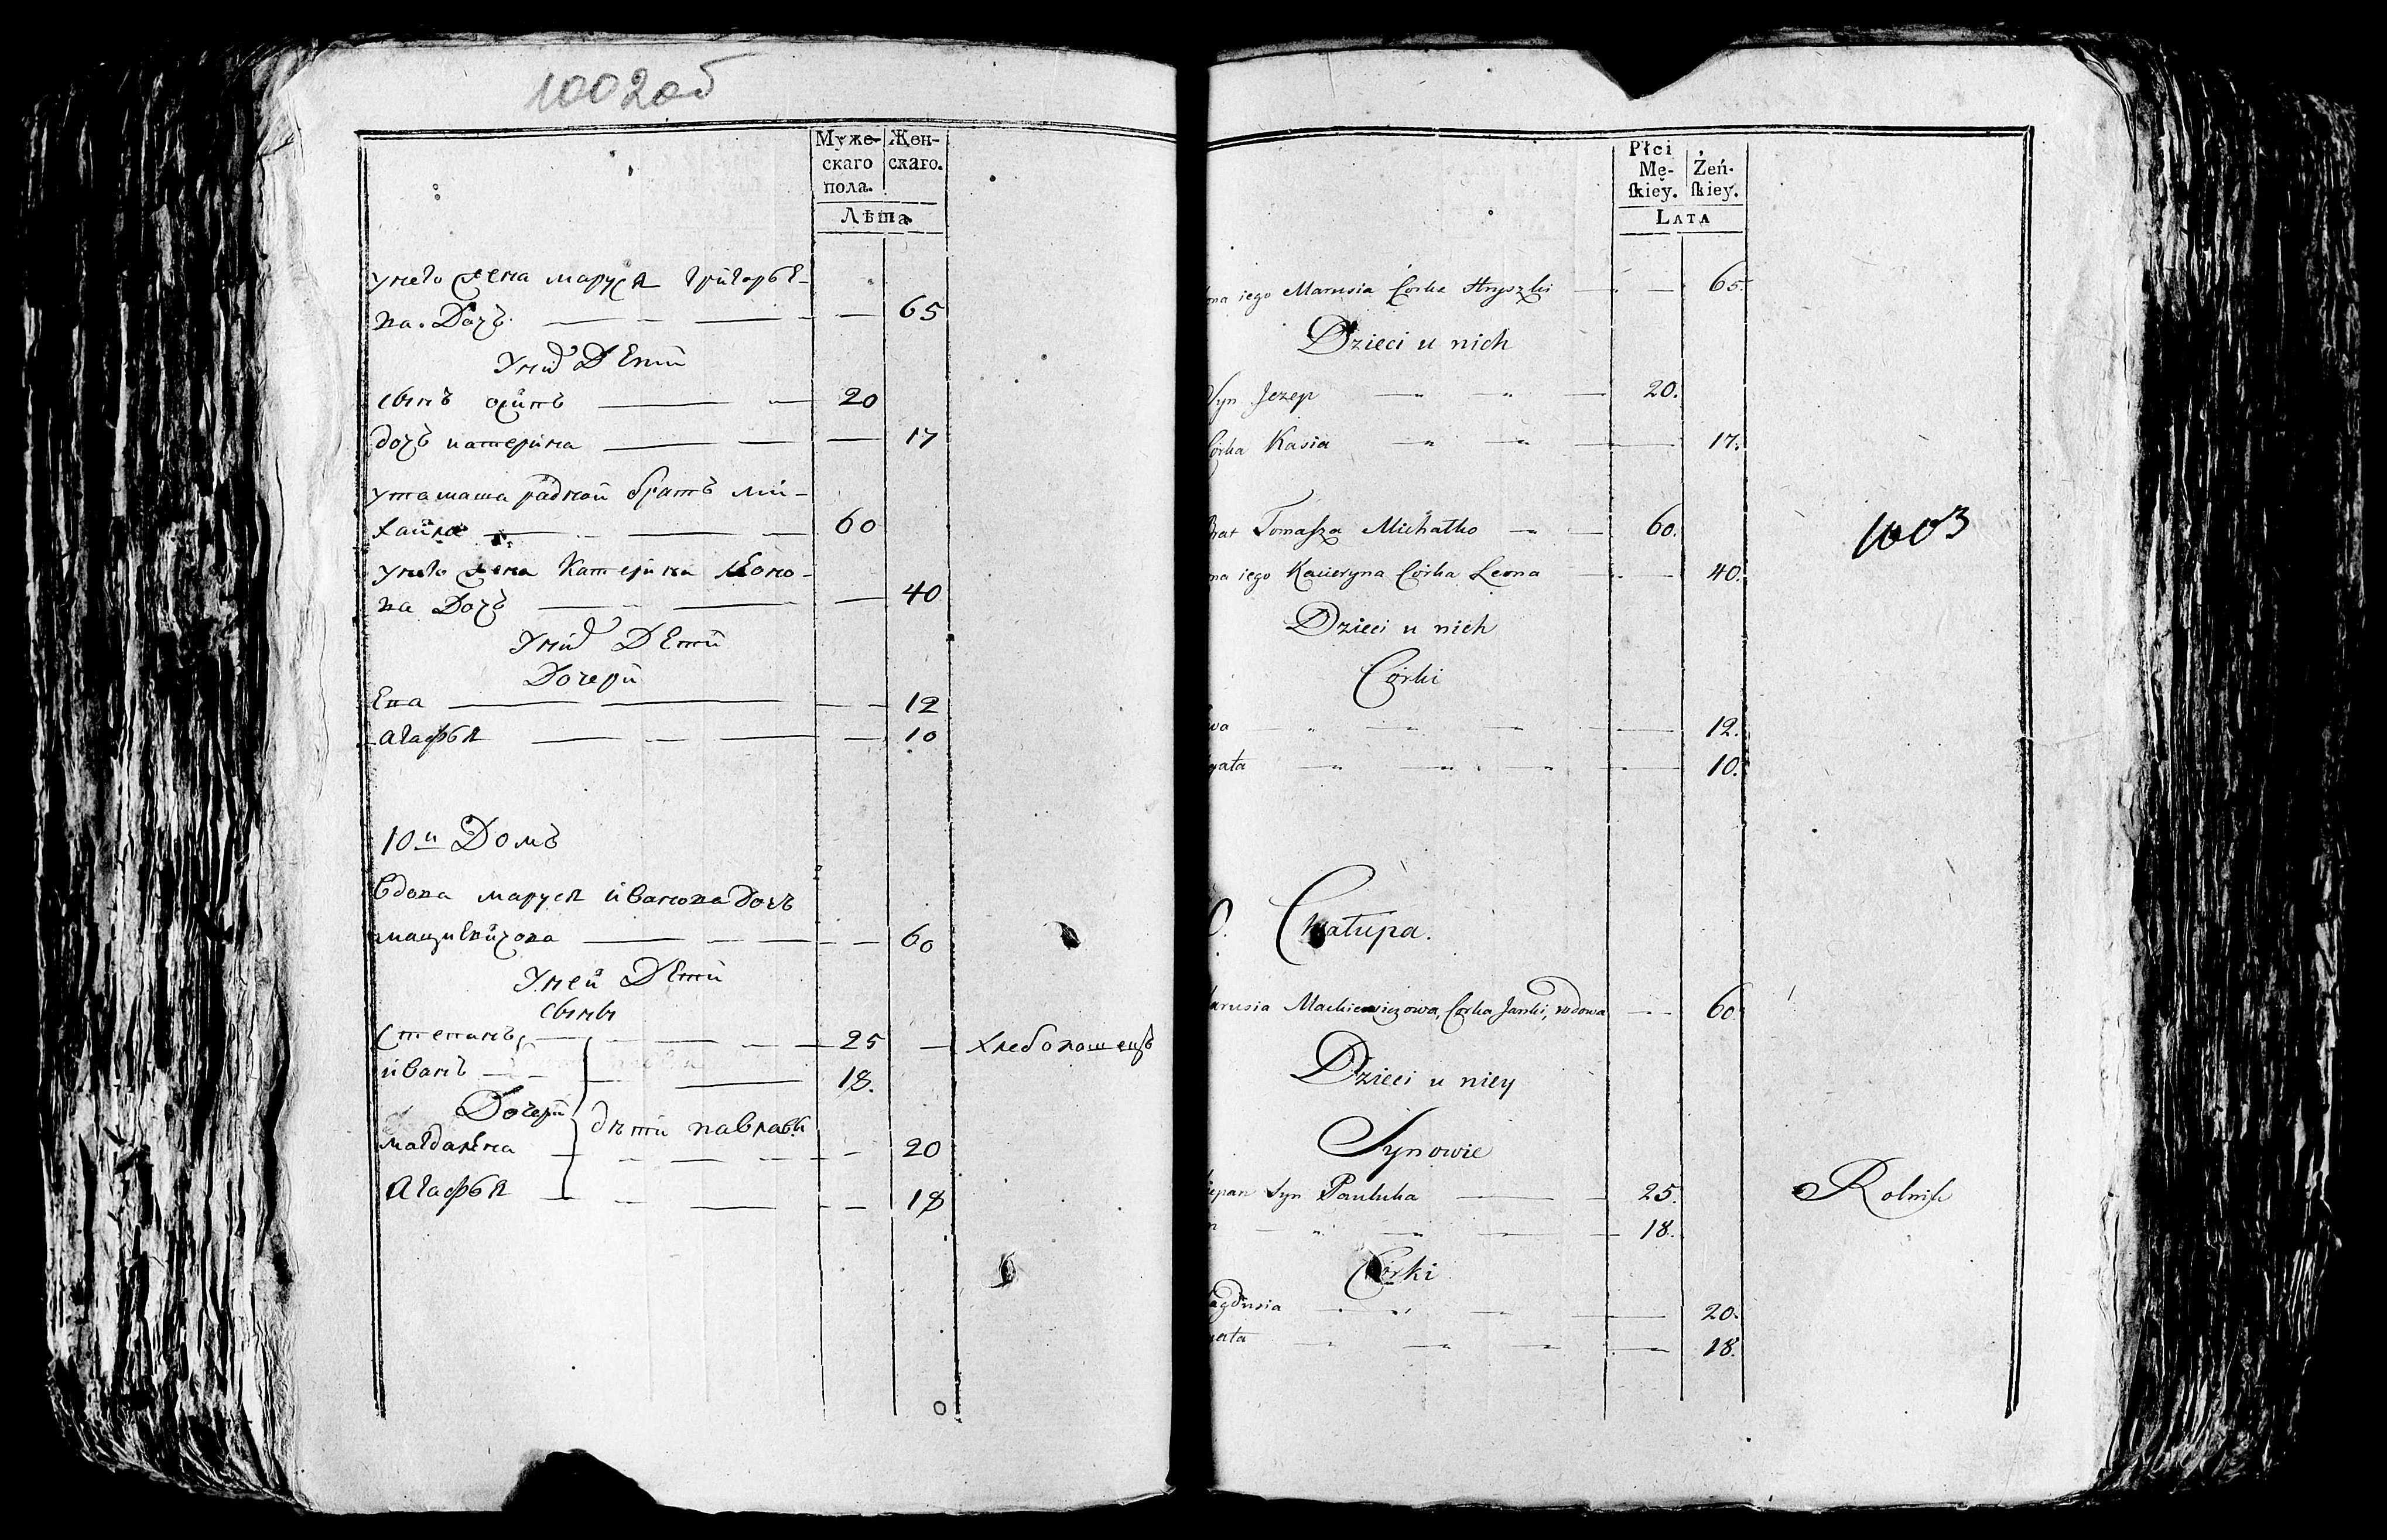 1002об
Муже- Жен-
скаго скаго.
пола.
Лѣта
унего жена маруся григорье-
ва. Дочь 65
Уних Дети
сынъ осипъ 20
дочь катерина 17
утамаша радной братъ ми-
хайла 60
унего жена Катерина леоно-
ва Дочь 40
Уних Дети
Дочери
Ева 12
агафья 10
10й Домъ
вдова маруся иванова дочь
мацкевичова 60
Уней Дети
сыны
Степанъ 25 хлебопашецъ
иванъ 18.
Дочери
дѣти павлавы
магдалена 20
Агафья 18
Płci
Mę- Żeń-
skiey. skiey.
LATA
ona iego Marusia Corka Hryszki 65.
Dzieci u nich
Syn Jezep 20.
Córka Kasia 17.
Brat Tomasza Michałko 60.
1003
ona iego Kateryna Córka Leona 40.
Dzieci u nich
Córki
wa 12.
gata 10.
0. Chałupa.
arusia Mackiewiczowa, Corka Janki, wdowa 60
Dzieci u niey
Synowie
zepan Syn Pauluka 25. Rolnik
n 18.
Córki
agdusia 20.
gata 18.